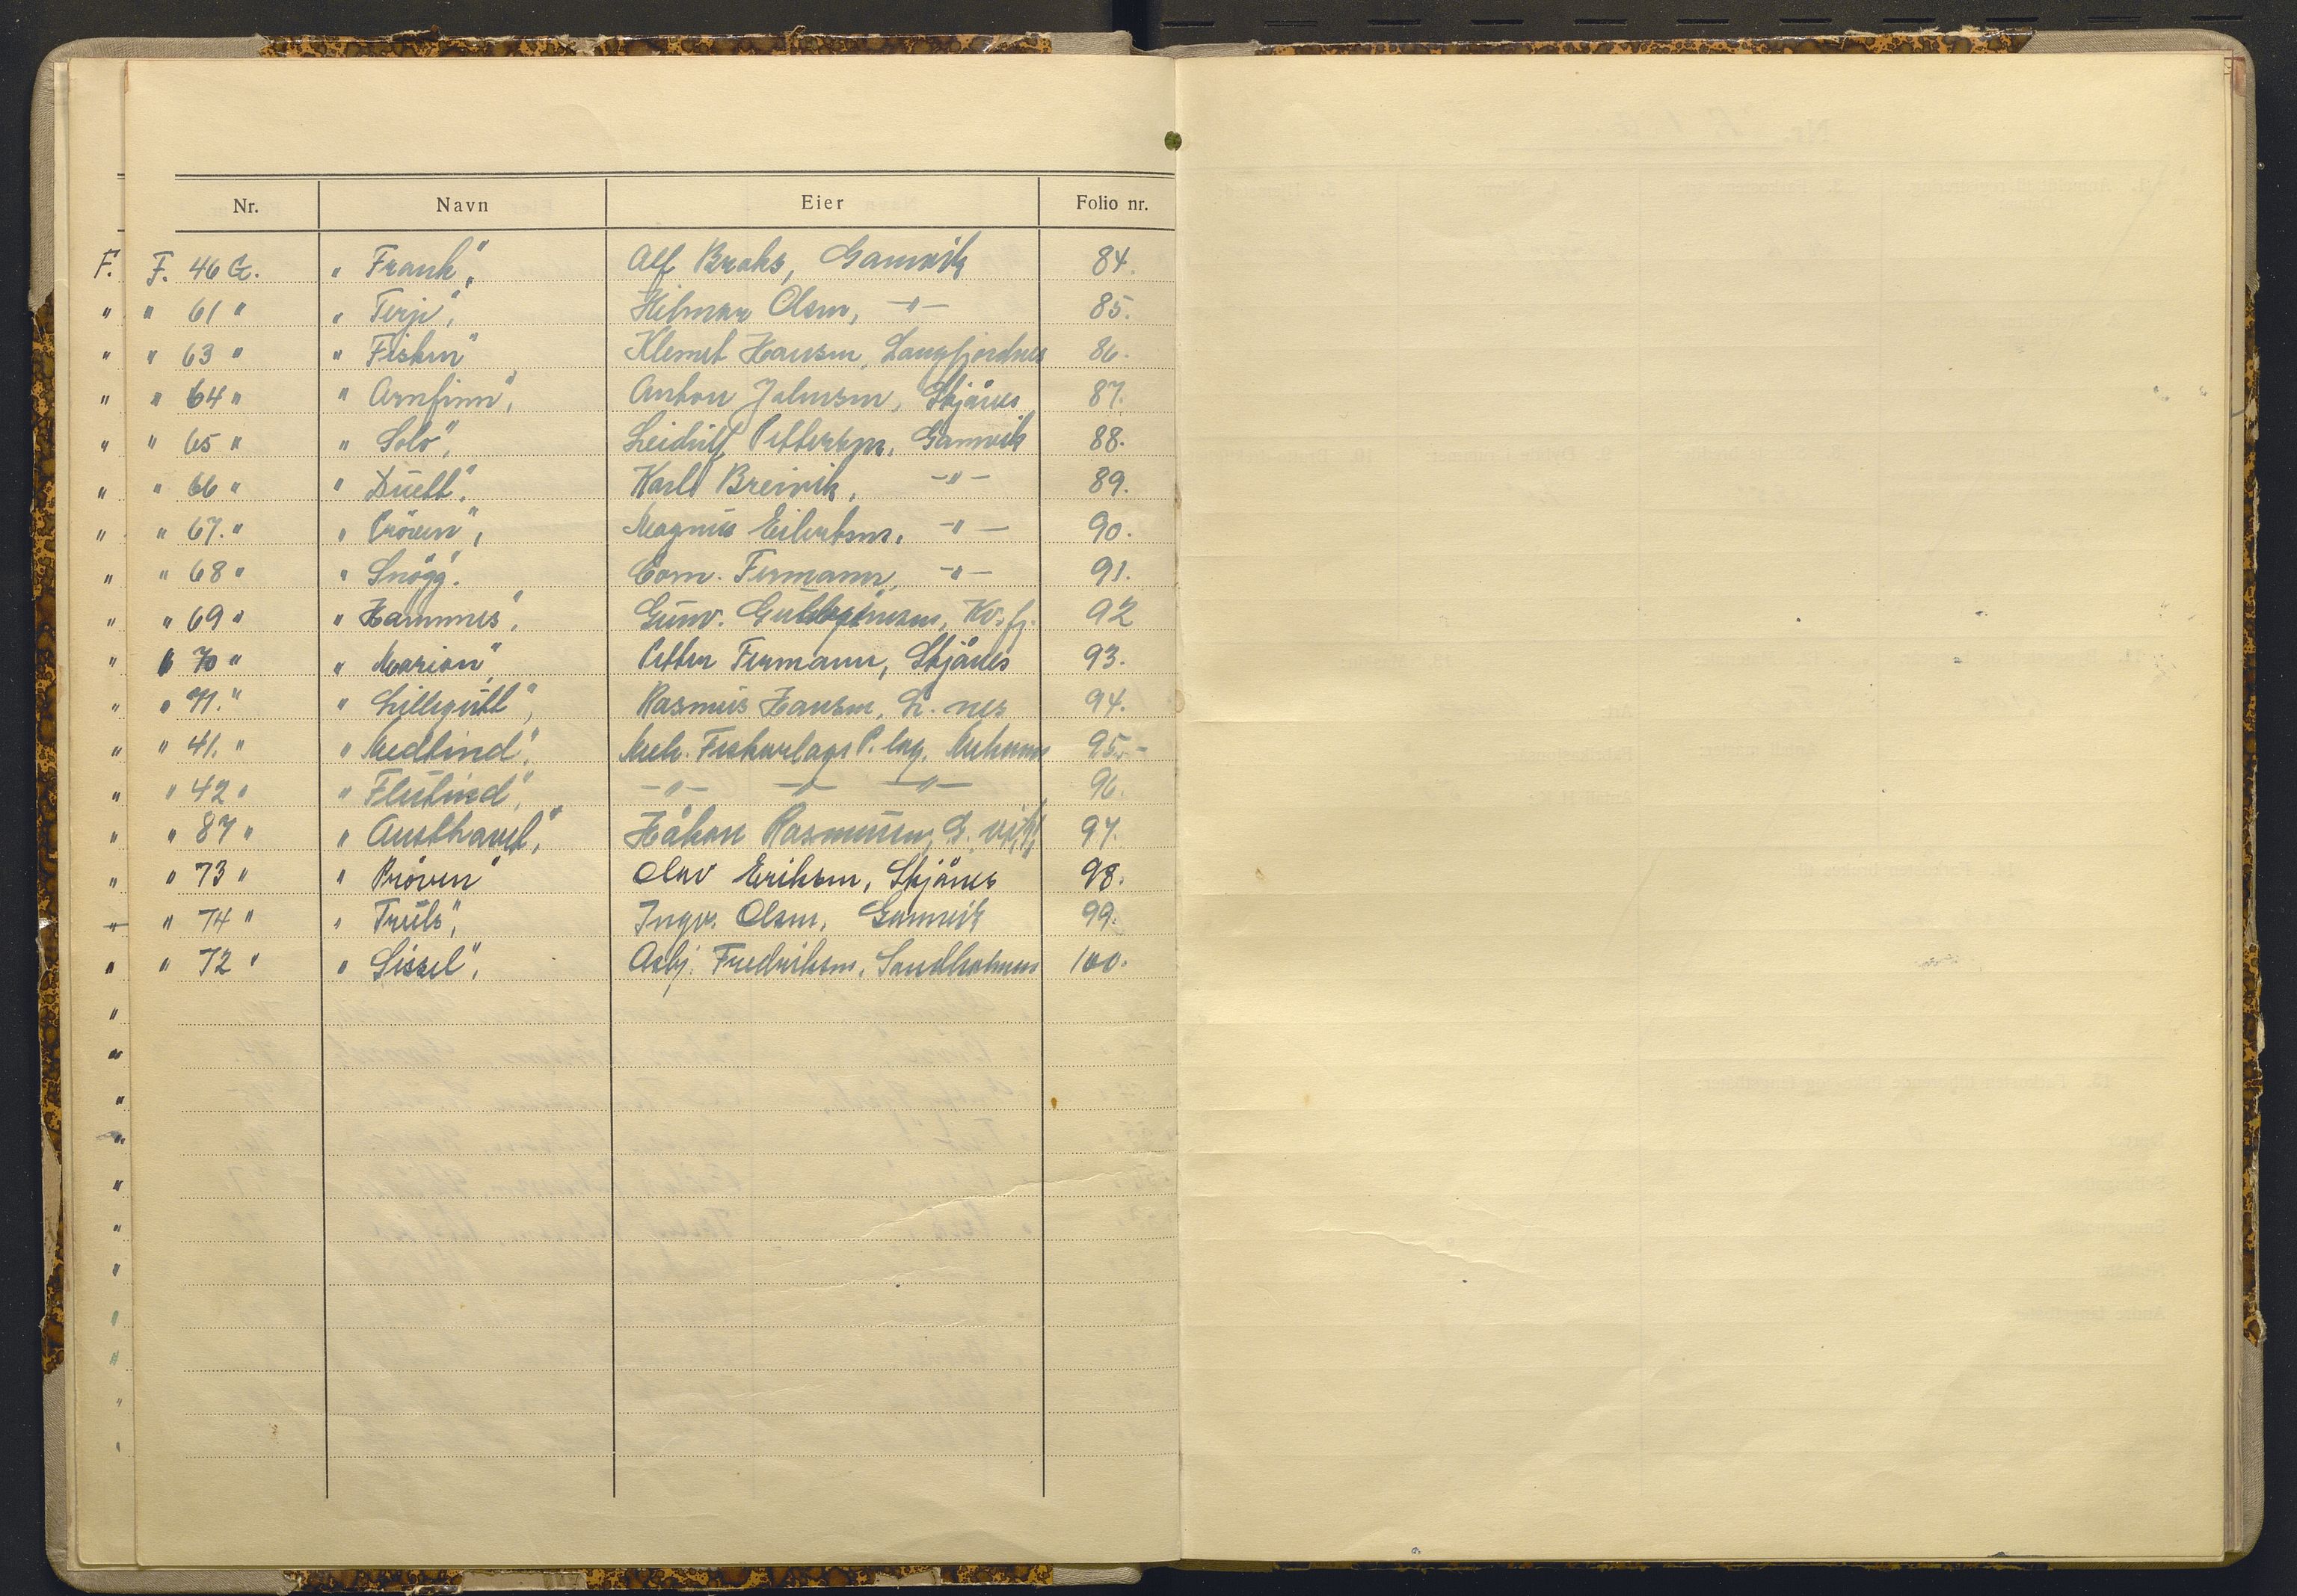 Nr. Navn Eier Folio nr.
F. F. 46 G. "Frank", Alf Broks, Gamvik 84.
" " 61 " "Terje", Hilmar Olsen, -"- 85.
" " 63 " "Fisken" Klemet Hansen, Langfjordnes 86.
" " 64 " "Arnfinn", Anton Johnsen, Skjånes 87.
" " 65 " "Solo", Leidulf Pettersen, Gamvik 88.
" " 66 " "Duett". Karl Breivik, -"- 89.
" " 67. " "Prøven", Magnus Eilertsen, -"- 90.
" " 68 " "Snøgg". Corn. Fermann, -"- 91.
" " 69 " "Hammnes", Gunv. Kv.fj. 92
" " 70 " "Marion", Petter Fermann, Skjånes 93.
" " 71. " "Lillegutt", Rasmus Hansen, L. nes 94.
" " 41. " "Medtind", Meh. Fiskarlags P. lag, Mehamn 95.-
" " 42 " "Flutind", -"- -"- -"- 96.
" " 87 " "Austhavet", Håkon Rasmussen, G. vik 97.
" " 73 " "Prøven" Olav Eriksen, Skjånes 98.
" " 74 " "Truls", Ingv. Olsen, Gamvik 99.
" " 72 " "Sissel", Asbj. Fredriksen, Sandholmen 100.
"
"
"
"
"
"
"
"
"
"
"